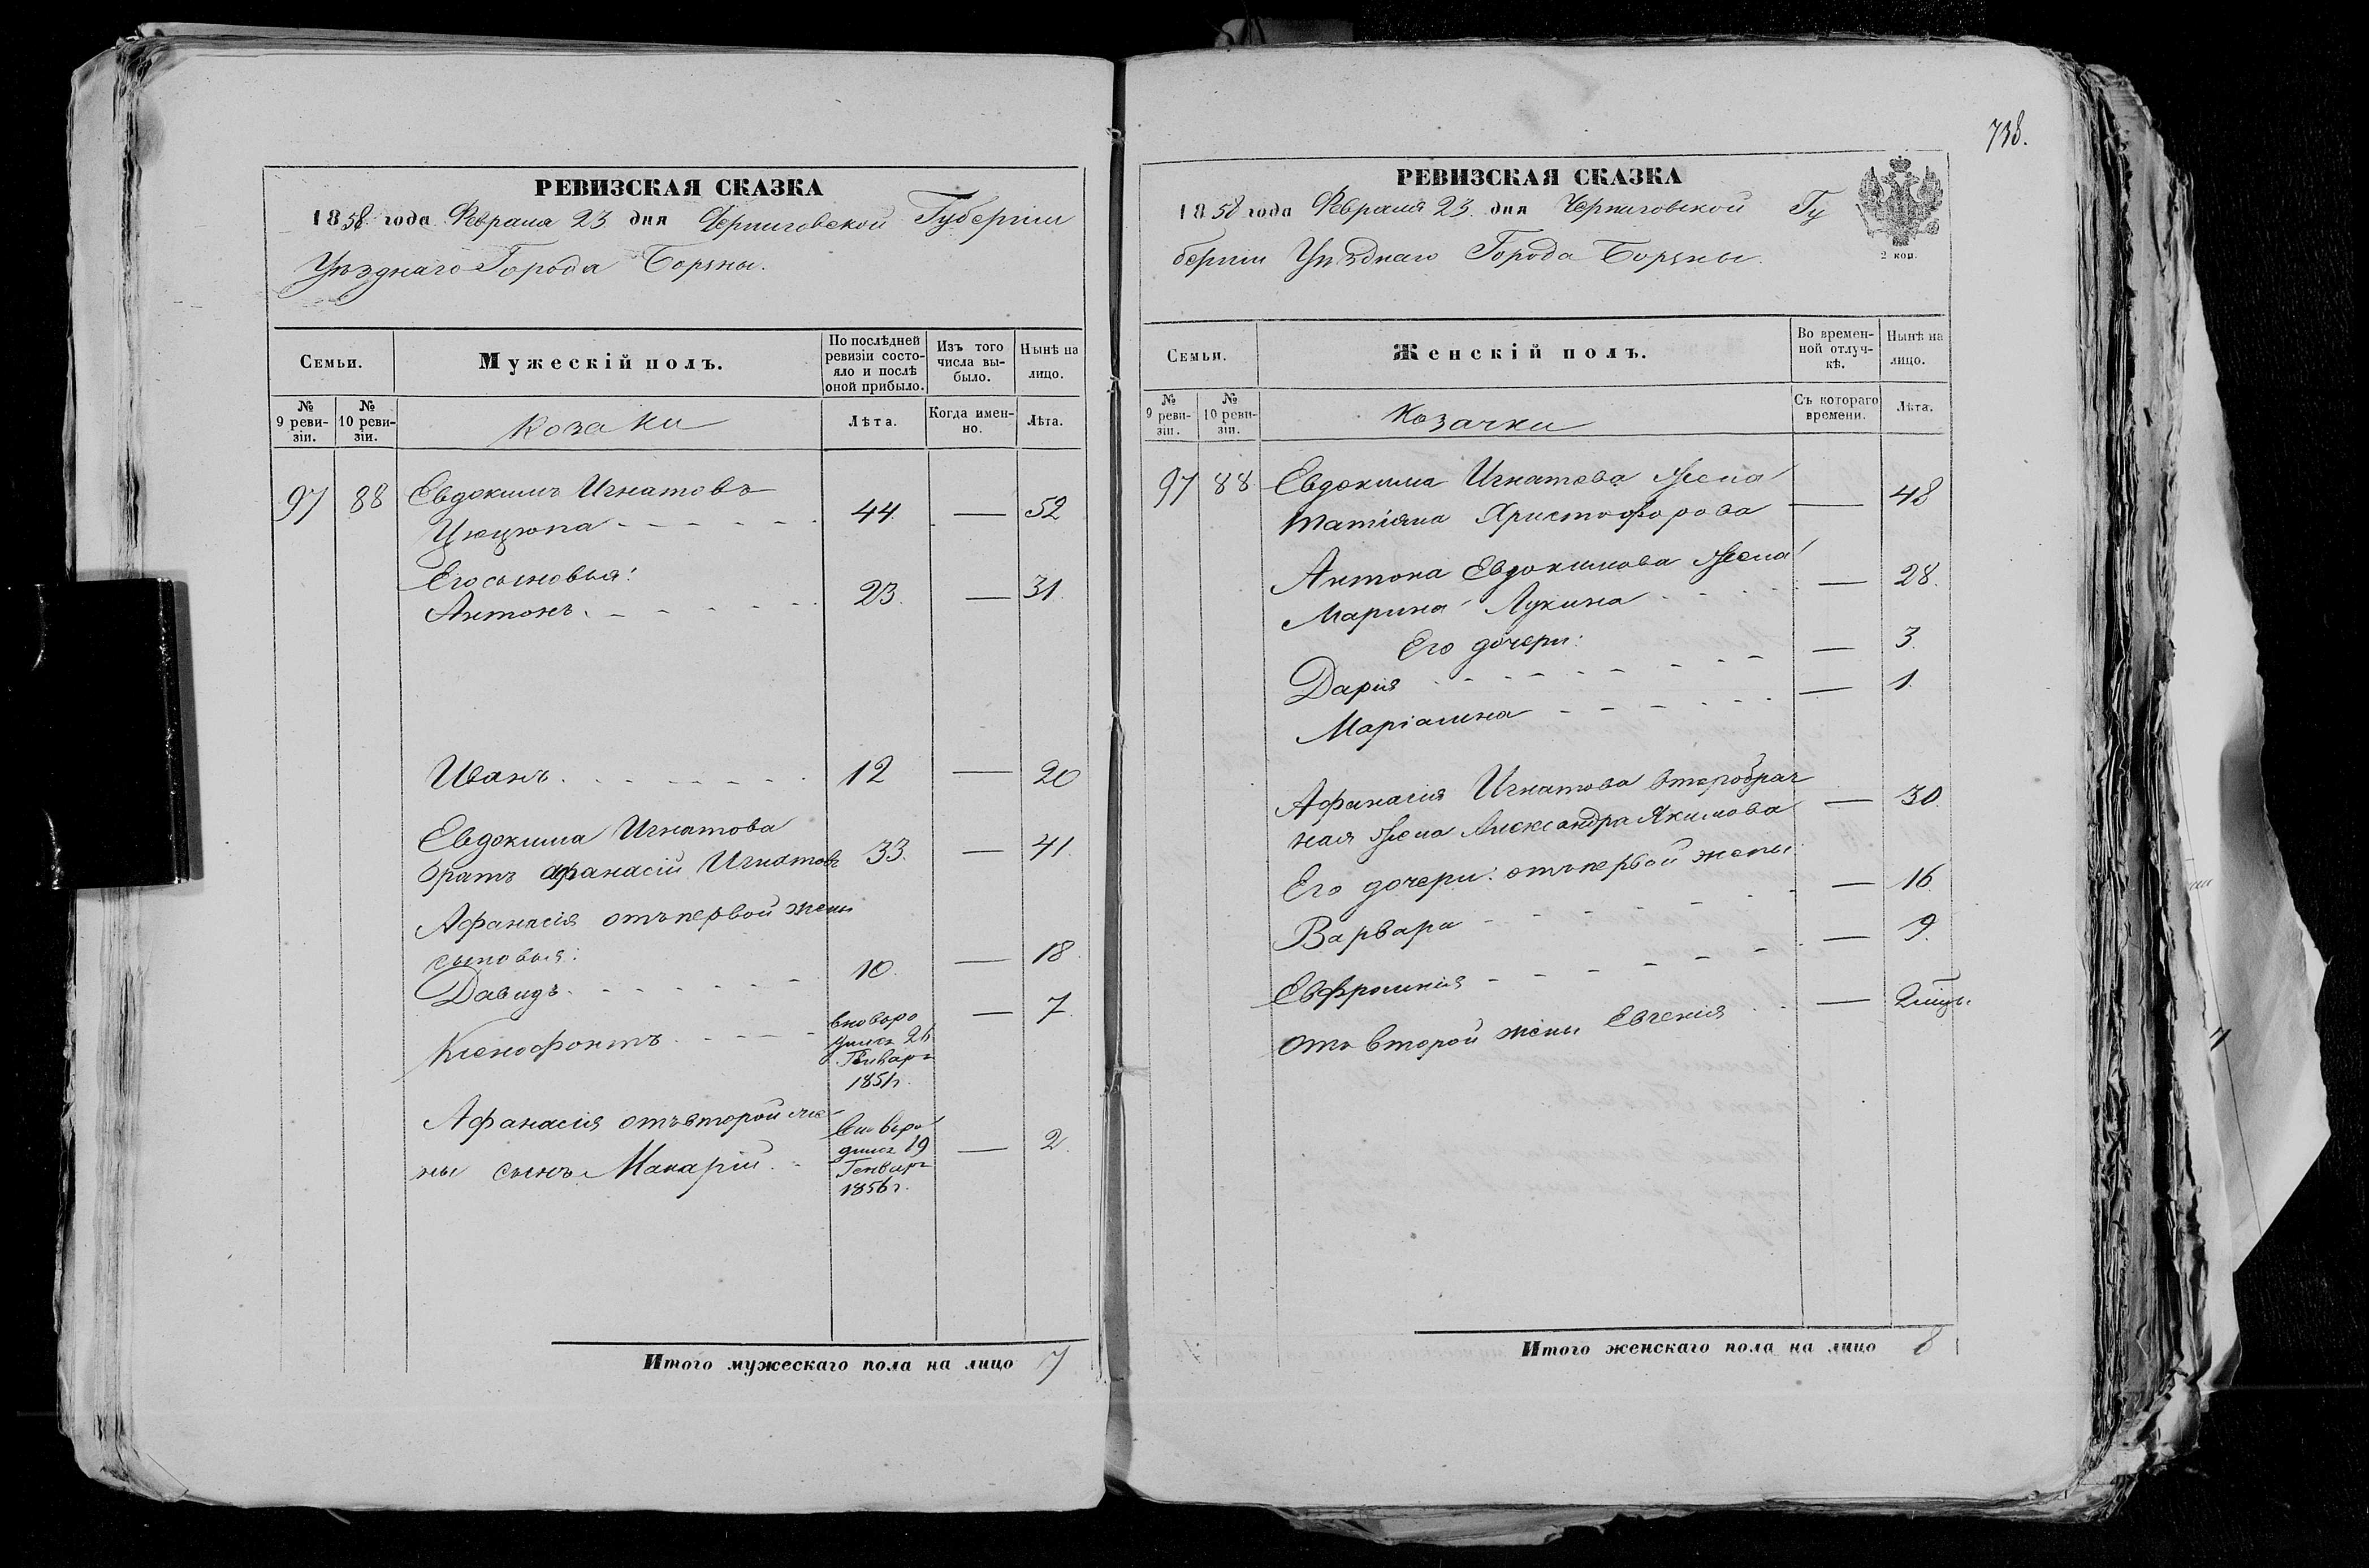 РЕВИЗСКАЯ СКАЗКА
1858 года Февраля 23 дня Черниговской Губернии
Уѣзднаго Города Борзны.
Семьи.
Мужескій полъ.
По послѣдней ревизіи состояло и послѣ оной прибыло.
Изъ того числа выбыло.
Нынѣ на лицо.
№ 9 ревизіи.
№ 10 ревизіи.
Козаки
Лѣта.
Когда именно.
Лѣта.
97 88 Евдокимъ Игнатовъ
Цюцюпа 44 — 52
Его сыновья:
Антонъ 23 — 31
Иванъ 12 — 20
Евдокима Игнатова
братъ Афанасій Игнатовъ 33 — 41
Афанасія отъ первой жены
сыновья:
Давидъ 10 — 18
Ксенофонтъ — 7
вново ро
дился 26
Генваря
1851 г.
Афанасія отъ второй же
ны сынъ Макарій — 2
вново ро
дился 19
Генваря
1856 г.
Итого мужескаго пола на лицо 7
738.
РЕВИЗСКАЯ СКАЗКА
1858 года Февраля 23 дня Черниговской Гу
берніи Уѣзднаго Города Борзны.
2 коп.
Семьи.
Женскій полъ.
Во временной отлучкѣ.
Нынѣ на лицо.
№ 9 ревизіи.
№ 10 ревизіи.
Козачки
Съ котораго времени.
Лѣта.
97 88 Евдокима Игнатова жена
Татіяна Христофорова — 48
Антона Евдокимова жена
Марина Лукина — 28
Его дочери:
Дарія — 3
Маріамна — 1
Афанасія Игнатова второбрач
ная жена Александра Якимова — 30
Его дочери: отъ первой жены
Варвара — 16
Евфросинія — 9
Отъ второй жены Евгенія — 2 мѣц.
Итого женскаго пола на лицо 8